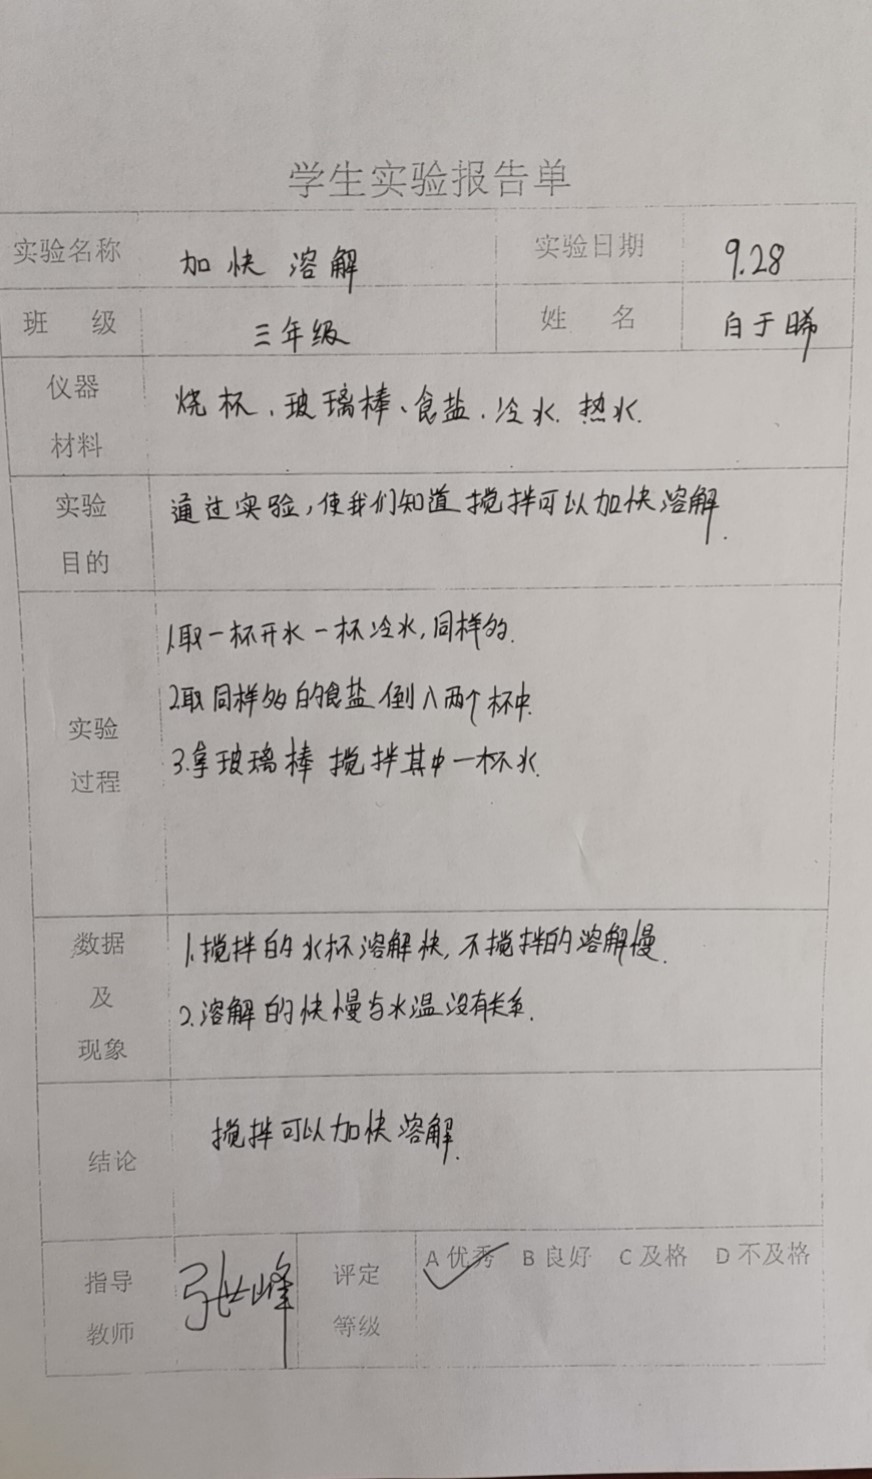 学生实验报告单
实验名称 加快溶解 实验日期 9.28
班 级 三年级 姓 名 白于晞
仪器
材料
烧杯、玻璃棒、食盐、冷水、热水.
实验
目的
通过实验,使我们知道搅拌可以加快溶解.
实验
过程
1.取一杯开水一杯冷水,同样多.
2.取同样多的食盐倒入两个杯中.
3.拿玻璃棒搅拌其中一杯水.
数据
及
现象
1.搅拌的水杯溶解快,不搅拌的溶解慢.
2.溶解的快慢与水温没有关系.
结论
搅拌可以加快溶解.
指导
教师
评定
等级
A 优秀 B 良好 C 及格 D 不及格